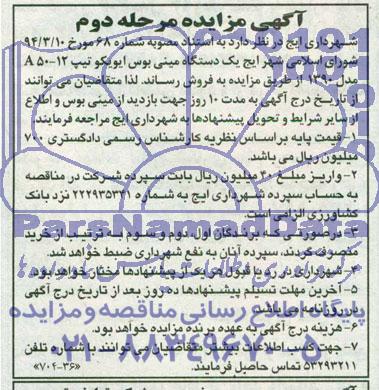 آگهی مزایده مرحله دوم
شهرداری ایج در نظر دارد به استناد مصوبه شماره ۶۸ مورخ ۹۴/۳/۱۰
شورای اسلامی شهر ایج یک دستگاه مینی بوس ایویکو تیپ A 50-12
مدل ۱۳۹۰ از طریق مزایده به فروش رساند. لذا متقاضیان می توانند
از تاریخ درج آگهی به مدت ۱۰ روز جهت بازدید از مینی بوس و اطلاع
از سایر شرایط و تحویل پیشنهادها به شهرداری ایج مراجعه فرمایند
۱- قیمت پایه براساس نظریه کارشناس رسمی دادگستری ۷۰۰
میلیون ریال می باشد.
۲- واریز مبلغ ۴۰ میلیون ریال بابت سپرده شرکت در مناقصه
به حساب سپرده شهرداری ایج به شماره ۲۲۲۹۳۵۳۳۱ نزد بانک
کشاورزی الزامی است.
۳- در صورتی که برندگان اول، دوم و سوم به ترتیب از خرید
منصرف گردند، سپرده آنان به نفع شهرداری ضبط خواهد شد.
۴- شهرداری در رد یا قبول هر یک از پیشنهادها مختار خواهد بود.
۵- آخرین مهلت تسلیم پیشنهادها ده روز بعد از تاریخ درج آگهی
در روزنامه می باشد.
۶- هزینه درج آگهی به عهده برنده مزایده خواهد بود.
۷- جهت کسب اطلاعات بیشتر متقاضیان می توانند با شماره تلفن
۵۳۲۹۳۲۱۱ تماس حاصل فرمایند. «۷۰۴-۳۶»
ParsNamadData
پایگاه اطلاع رسانی مناقصه و مزایده
۰۲۱-۸۸۳۴۹۶۷۰-۵